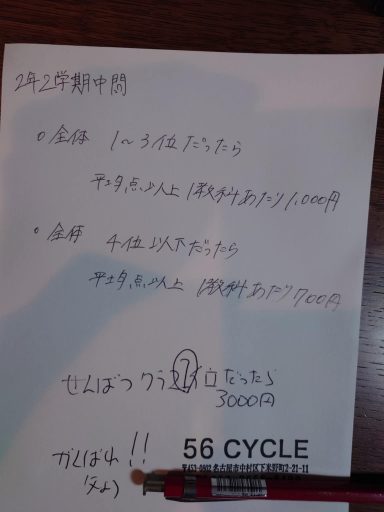 2年2学期中間
○ 全体 1〜3位だったら
平均点以上 1教科あたり1,000円
○ 全体 4位以下だったら
平均点以上 1教科あたり700円
せんばつクラス1位だったら
3000円
がんばれ!!
父より
56 CYCLE
名古屋市中村区下米野町2-21-11